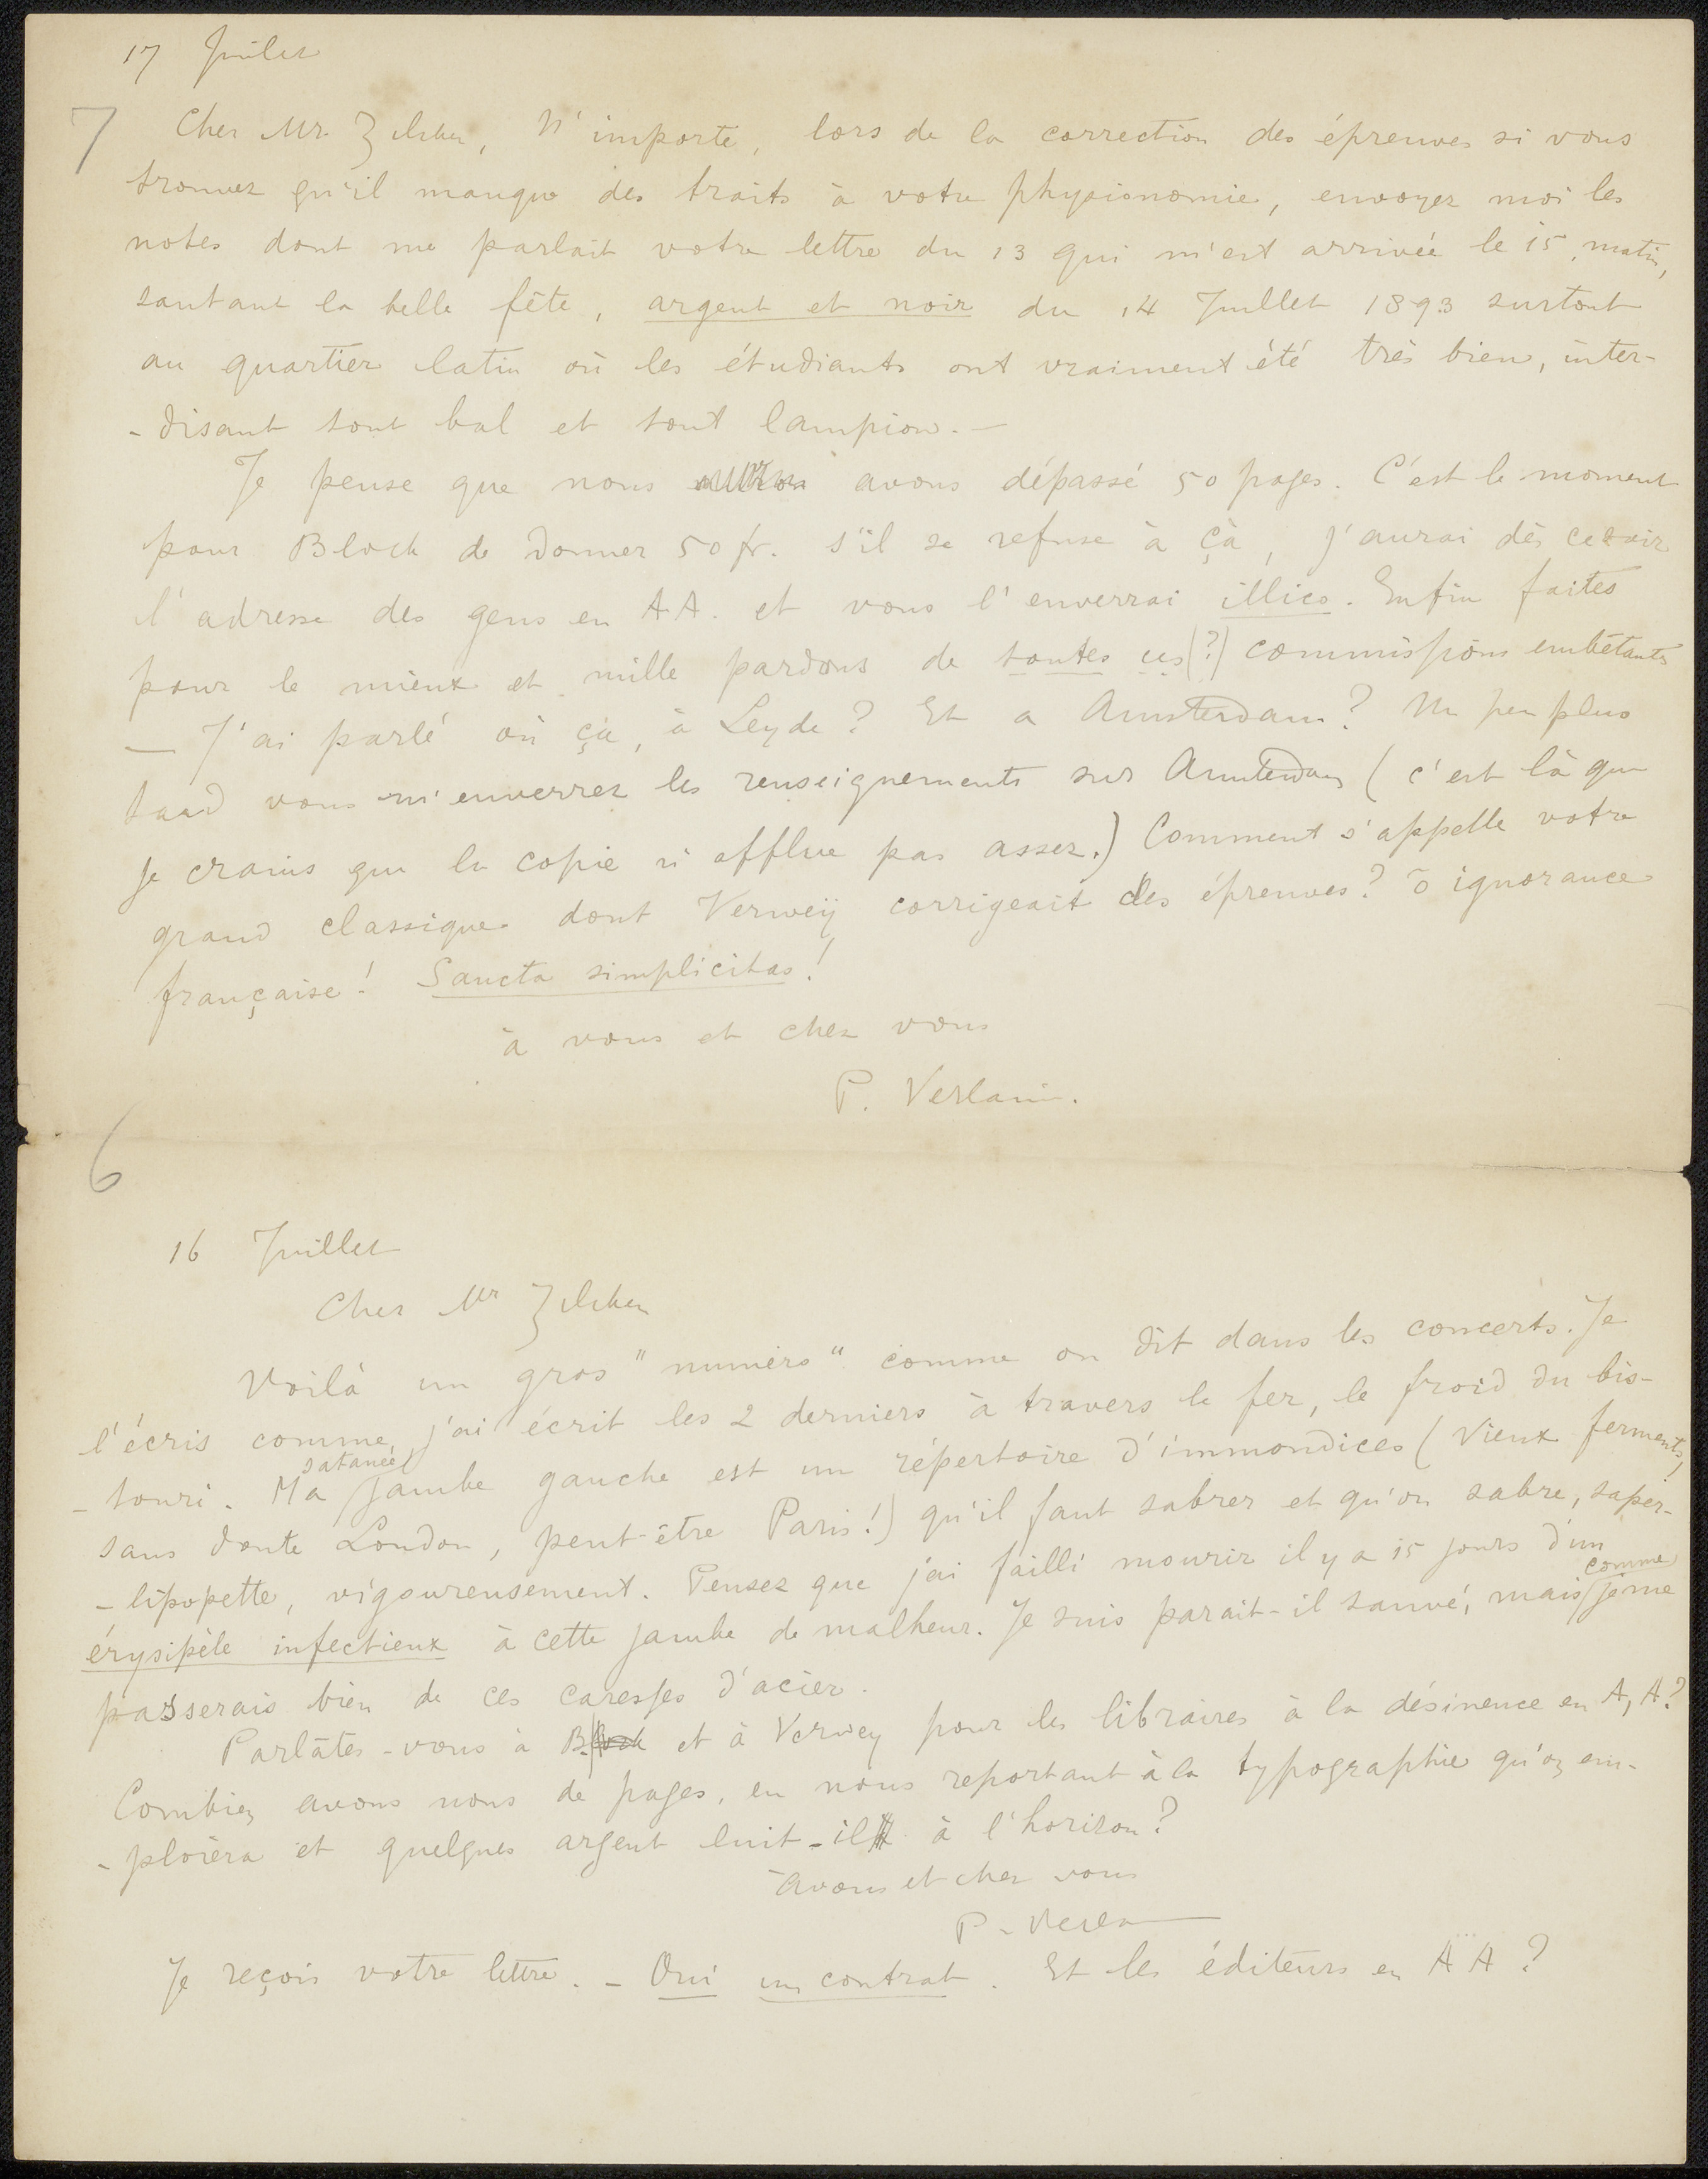 17 Juilet
7
Cher Mr. Zilcken, N'importe, lors de la correction des épreuves si vous
trouvez qu'il manque des traits à votre physionomie, envoyez moi les
notes dont me parlait votre lettre du 13 qui m'est arrivée le 15, matin,
sautant la belle fête, argent et noir du 14 Juillet 1893 surtout
au quartier latin où les étudiants ont vraiment été très bien, inter-
-disant tout bal et tout lampion. —
Je pense que nous avons dépassé 50 pages. C'est le moment
pour Block de donner 50 fr. s'il se refuse à çà, j'aurai dès ce soir
l'adresse des gens en AA. et vous l'enverrai illico. Enfin faites
pour le mieux et mille pardons de toutes ces (?) commissions embêtantes
— J'ai parlé où çà, à Leyde? Et a Amsterdam? Un peu plus
tard vous m'enverrez les renseignements sur Amsterdam (c'est là que
je crains que la copie n'efflue pas assez.) Comment s'appelle votre
grand classique dont Verweÿ corrigeait des épreuves? ô ignorance
française! Sancta simplicitas!
à vous et chez vous
P. Verlaine.
6
16 Juillet
Cher Mr Zilcken
Voilà un gros "numéro" comme on dit dans les concerts. Je
l'écris comme j'ai écrit les 2 derniers à travers le fer, le froid du bis-
-touri. Ma satanée jambe gauche est un répertoire d'immondices (Vieux ferments,
sans doute London, peut-être Paris!) qu'il faut sabrer et qu'on sabre, saper-
-lipopette, vigoureusement. Pensez que j'ai failli mourir il y a 15 jours d'un
érysipèle infectieux à cette jambe de malheur. Je suis parait-il sauvé, mais comme je me
passerais bien de ces caresses d'acier.
Parlâtes-vous à B. Block et à Verwey pour les libraires à la désinence en A, A?
Combien avons nous de pages, en nous reportant à la typographie qu'on em-
-ploiera et quelques argent luit-il à l'horizon?
à vous et chez vous
P. Verla
Je reçois votre lettre. - Oui un contrat. Et les éditeurs en AA?